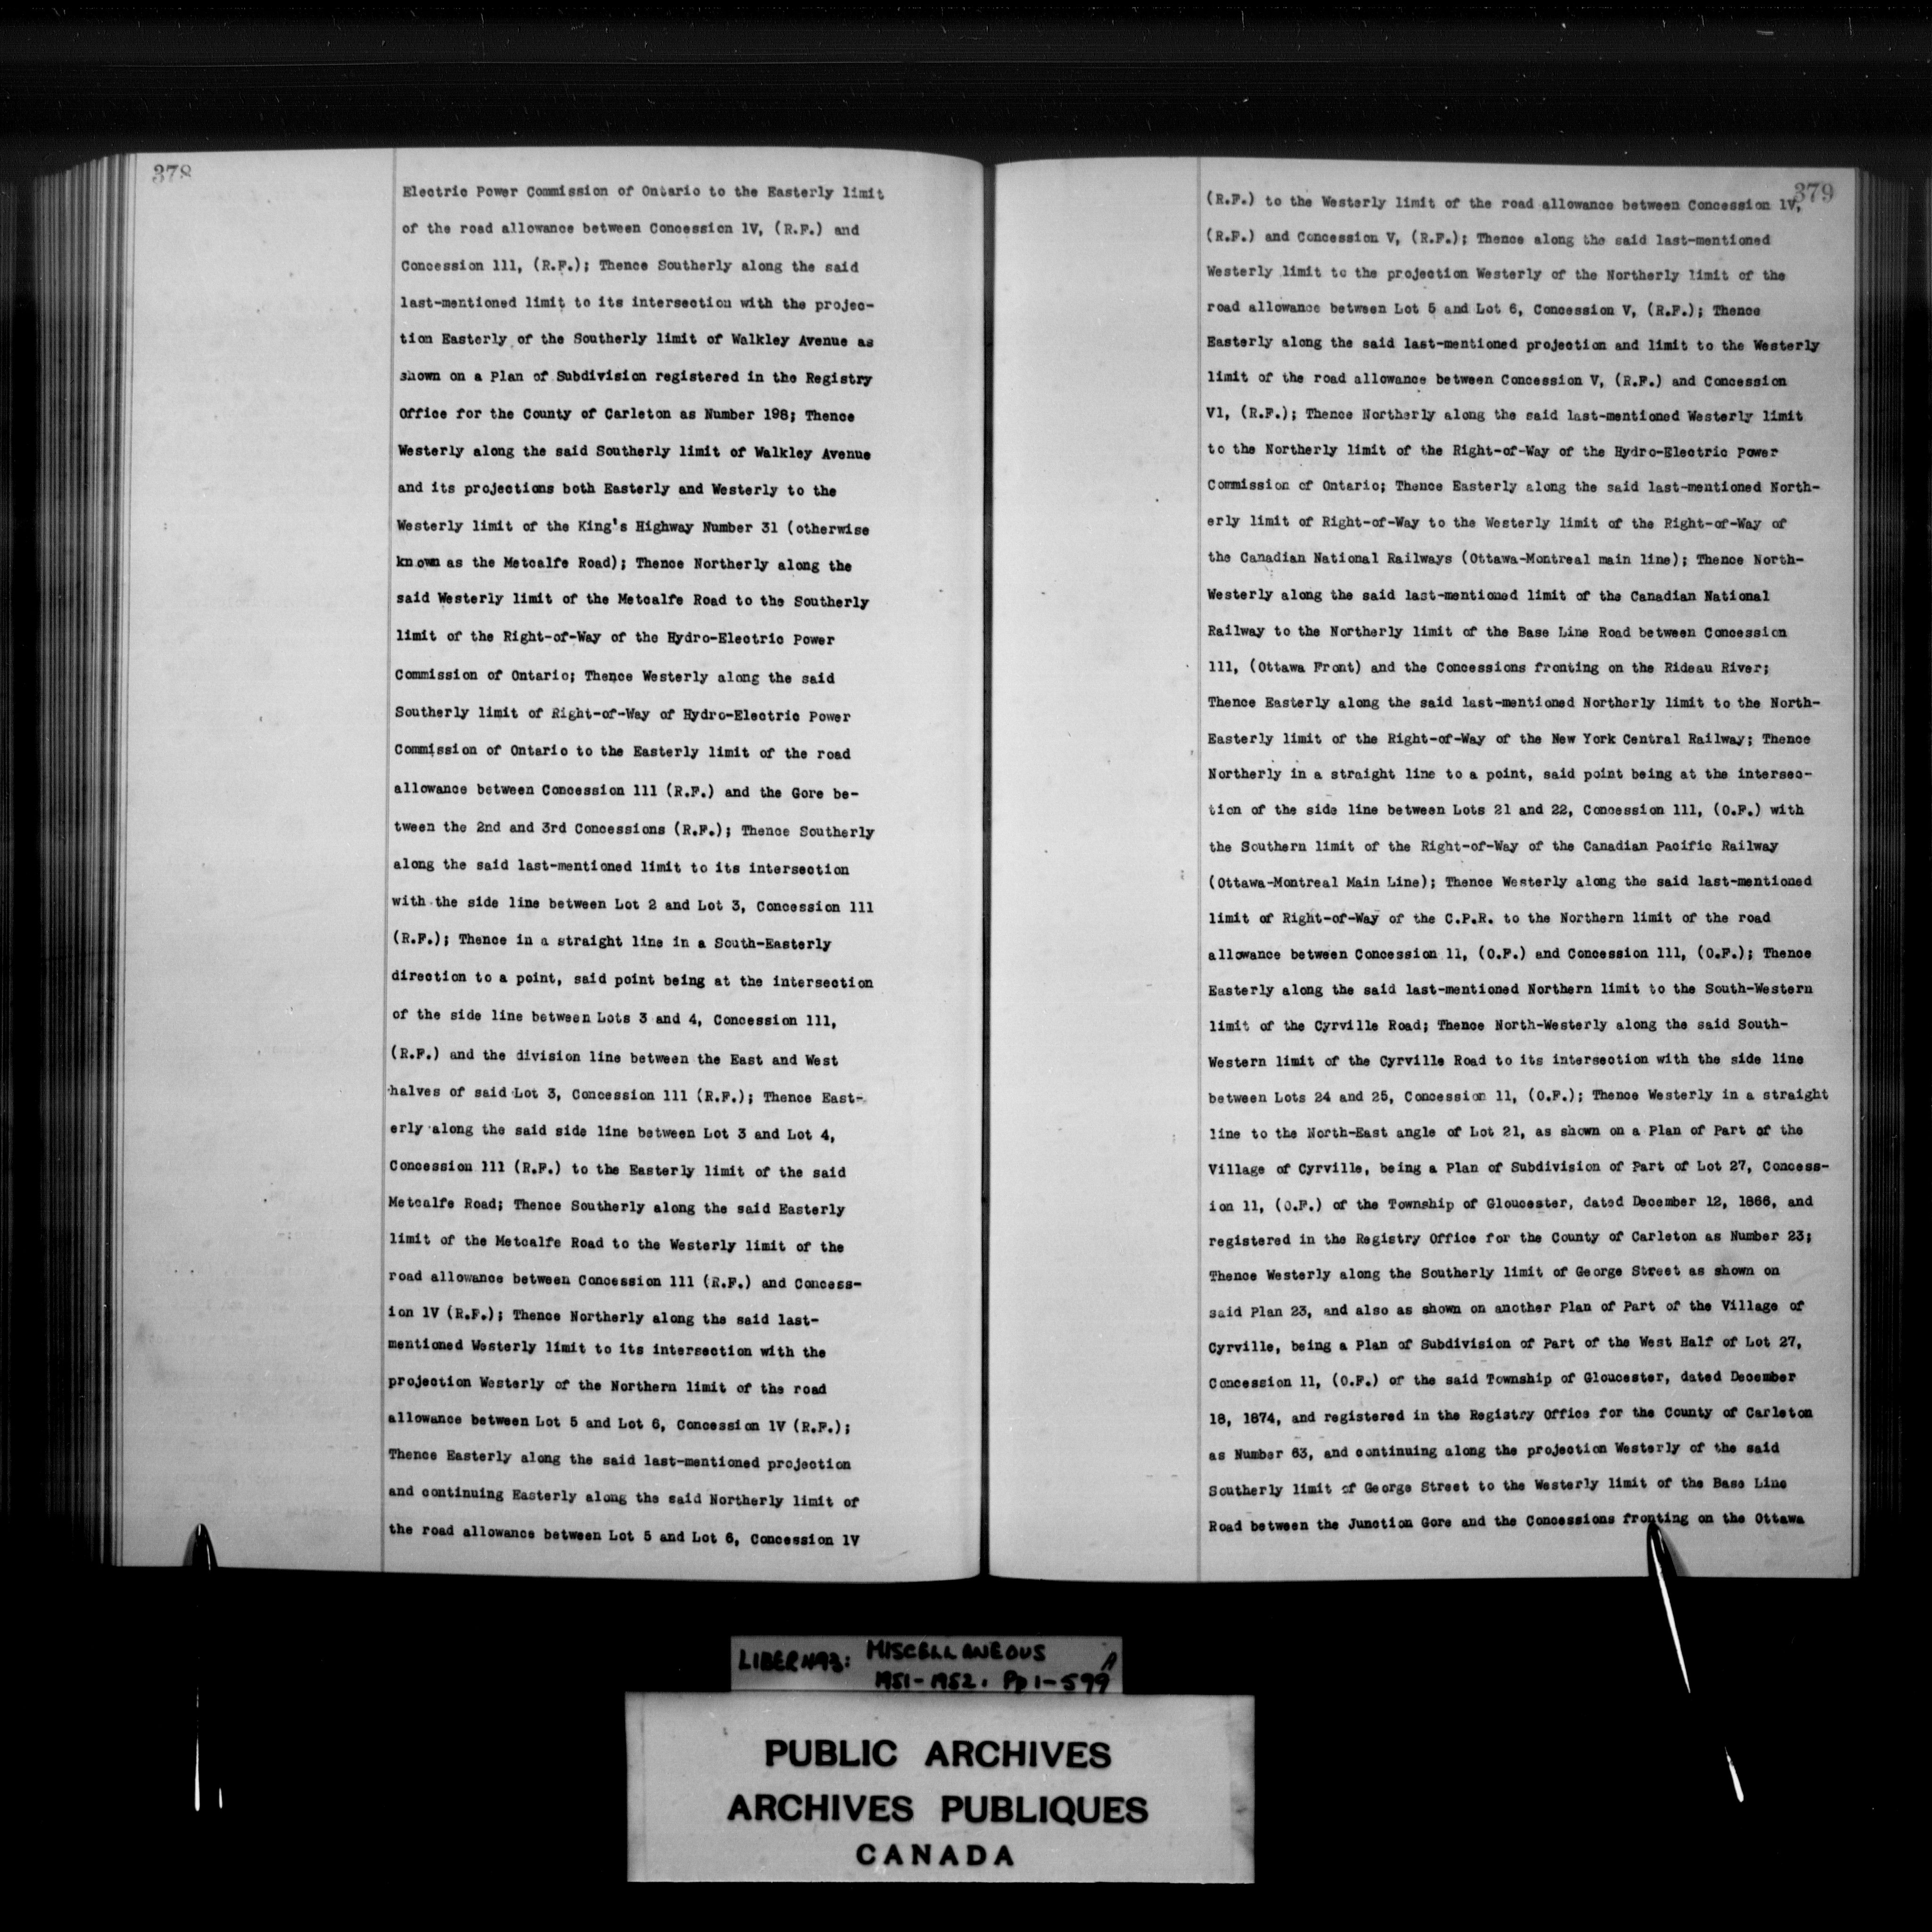 378
Electric Power Commission of Ontario to the Easterly limit
of the road allowance between Concession 1V, (R.F.) and
Concession 111, (R.F.); Thence Southerly along the said
last-mentioned limit to its intersection with the projec-
tion Easterly of the Southerly limit of Walkley Avenue as
shown on a Plan of Subdivision registered in the Registry
Office for the County of Carleton as Number 198; Thence
Westerly along the said Southerly limit of Walkley Avenue
and its projections both Easterly and Westerly to the
Westerly limit of the King's Highway Number 31 (otherwise
known as the Metcalfe Road); Thence Northerly along the
said Westerly limit of the Metcalfe Road to the Southerly
limit of the Right-of-Way of the Hydro-Electric Power
Commission of Ontario; Thence Westerly along the said
Southerly limit of Right-of-Way of Hydro-Electric Power
Commission of Ontario to the Easterly limit of the road
allowance between Concession 111 (R.F.) and the Gore be-
tween the 2nd and 3rd Concessions (R.F.); Thence Southerly
along the said last-mentioned limit to its intersection
with the side line between Lot 2 and Lot 3, Concession 111
(R.F.); Thence in a straight line in a South-Easterly
direction to a point, said point being at the intersection
of the side line between Lots 3 and 4, Concession 111,
(R.F.) and the division line between the East and West
halves of said Lot 3, Concession 111 (R.F.); Thence East-
erly along the said side line between Lot 3 and Lot 4,
Concession 111 (R.F.) to the Easterly limit of the said
Metcalfe Road; Thence Southerly along the said Easterly
limit of the Metcalfe Road to the Westerly limit of the
road allowance between Concession 111 (R.F.) and Concess-
ion 1V (R.F.); Thence Northerly along the said last-
mentioned Westerly limit to its intersection with the
projection Westerly of the Northern limit of the road
allowance between Lot 5 and Lot 6, Concession 1V (R.F.);
Thence Easterly along the said last-mentioned projection
and continuing Easterly along the said Northerly limit of
the road allowance between Lot 5 and Lot 6, Concession 1V
379
(R.F.) to the Westerly limit of the road allowance between Concession 1V,
(R.F.) and Concession V, (R.F.); Thence along the said last-mentioned
Westerly limit to the projection Westerly of the Northerly limit of the
road allowance between Lot 5 and Lot 6, Concession V, (R.F.); Thence
Easterly along the said last-mentioned projection and limit to the Westerly
limit of the road allowance between Concession V, (R.F.) and Concession
V1, (R.F.); Thence Northerly along the said last-mentioned Westerly limit
to the Northerly limit of the Right-of-Way of the Hydro-Electric Power
Commission of Ontario; Thence Easterly along the said last-mentioned North-
erly limit of Right-of-Way to the Westerly limit of the Right-of-Way of
the Canadian National Railways (Ottawa-Montreal main line); Thence North-
Westerly along the said last-mentioned limit of the Canadian National
Railway to the Northerly limit of the Base Line Road between Concession
111, (Ottawa Front) and the Concessions fronting on the Rideau River;
Thence Easterly along the said last-mentioned Northerly limit to the North-
Easterly limit of the Right-of-Way of the New York Central Railway; Thence
Northerly in a straight line to a point, said point being at the intersec-
tion of the side line between Lots 21 and 22, Concession 111, (O.F.) with
the Southern limit of the Right-of-Way of the Canadian Pacific Railway
(Ottawa-Montreal Main Line); Thence Westerly along the said last-mentioned
limit of Right-of-Way of the C.P.R. to the Northern limit of the road
allowance between Concession 11, (O.F.) and Concession 111, (O.F.); Thence
Easterly along the said last-mentioned Northern limit to the South-Western
limit of the Cyrville Road; Thence North-Westerly along the said South-
Western limit of the Cyrville Road to its intersection with the side line
between Lots 24 and 25, Concession 11, (O.F.); Thence Westerly in a straight
line to the North-East angle of Lot 21, as shown on a Plan of Part of the
Village of Cyrville, being a Plan of Subdivision of Part of Lot 27, Concess-
ion 11, (O.F.) of the Township of Gloucester, dated December 12, 1866, and
registered in the Registry Office for the County of Carleton as Number 23;
Thence Westerly along the Southerly limit of George Street as shown on
said Plan 23, and also as shown on another Plan of Part of the Village of
Cyrville, being a Plan of Subdivision of Part of the West Half of Lot 27,
Concession 11, (O.F.) of the said Township of Gloucester, dated December
18, 1874, and registered in the Registry Office for the County of Carleton
as Number 63, and continuing along the projection Westerly of the said
Southerly limit of George Street to the Westerly limit of the Base Line
Road between the Junction Gore and the Concessions fronting on the Ottawa
LIBER 1193: MISCELLANEOUS A
1951-1952. Pp 1-599
PUBLIC ARCHIVES
ARCHIVES PUBLIQUES
CANADA